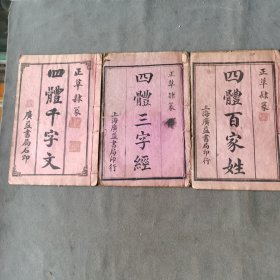 正草隸篆
四體千字文
廣益書局石印
正草隸篆
四體三字經
上海廣益書局印行
正草隸篆
四體百家姓
上海廣益書局印行